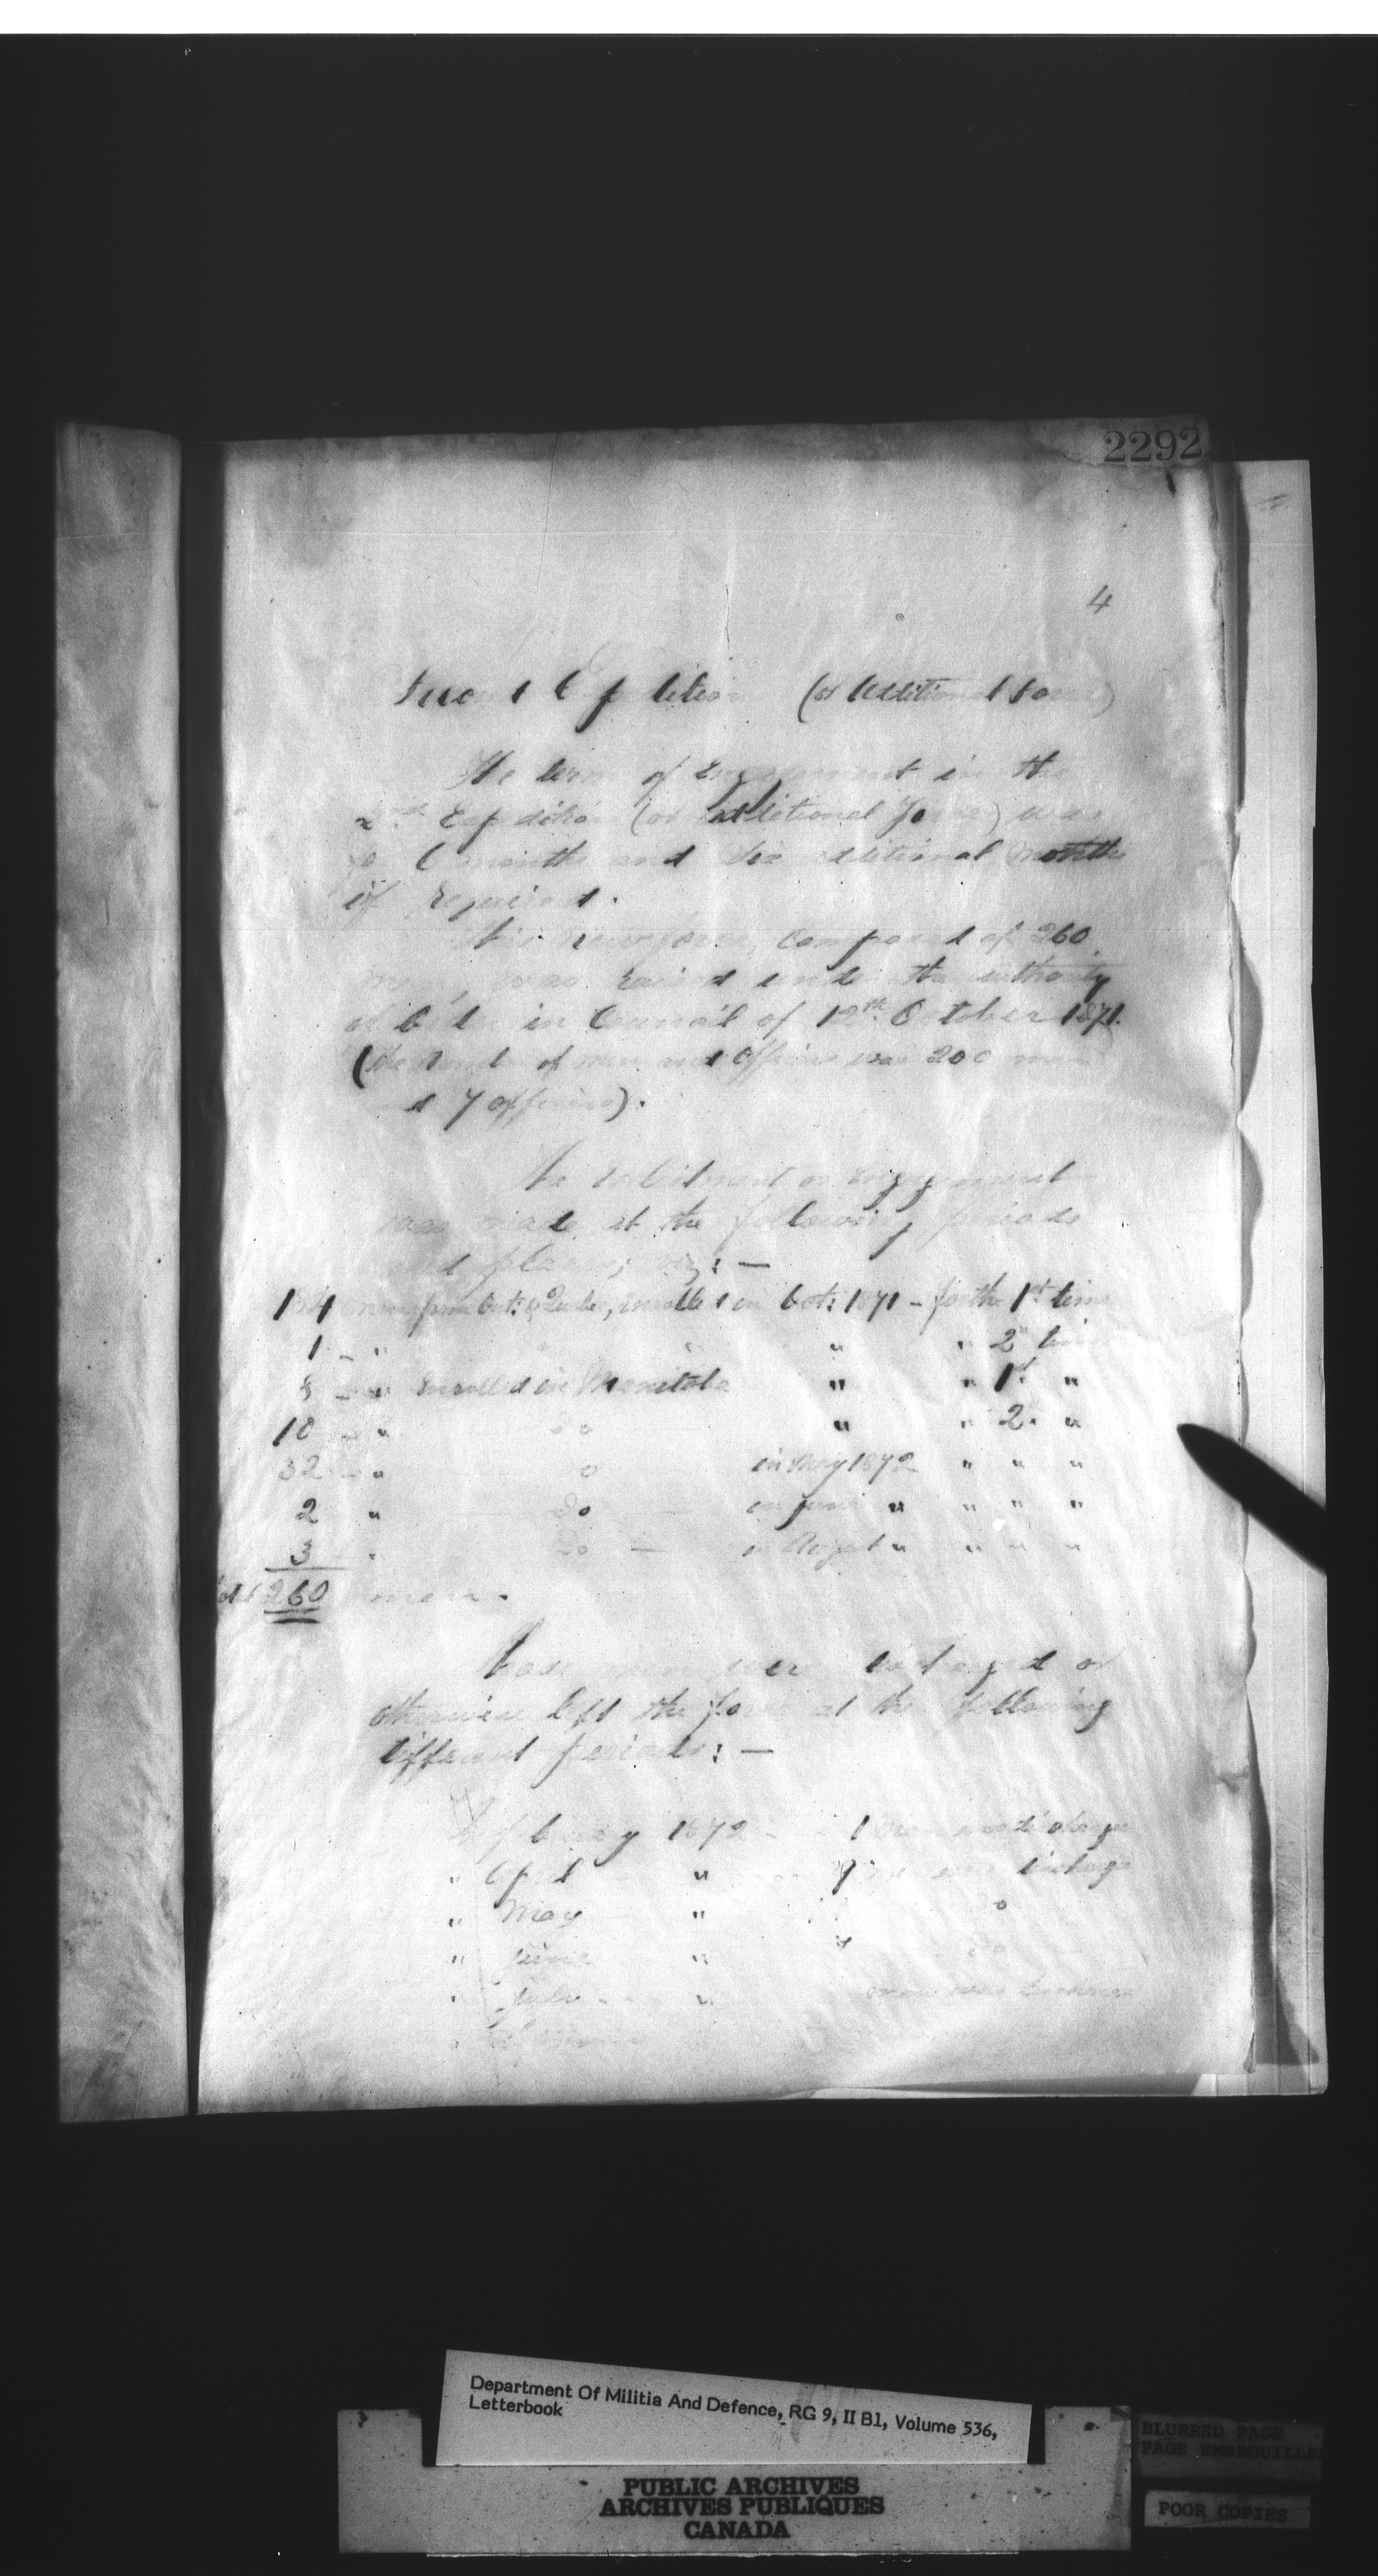 2292
4
Second Expedition (or Additional Force)
The term of Engagement in the
2nd Expedition (or additional Force) was
6 months and six additional months
if required.
This new force, composed of 260
men, was raised under the authority
of Order in Council of 12th October 1871.
(The number of men and Officers was 200 men
and 7 officers).
The enlistment or engagement
was made at the following periods
and places; viz: —
men from Ont: & Quebec, enrolled in Oct: 1871 - for the 1st time
1 - " " " 2nd time
8 - " enrolled in Manitoba " " 1st "
18 - " do " " 2. "
32 - " do in May 1872 " " "
2 " do — in June " " " "
3 " do — in August " " " "
Total 260 men.
These men were discharged or
otherwise left the force at the following
different periods: —
February 1872 - - 1 man discharged
" April " - - 9 discharged
" May " do
" June " do
" July - - " man was
"
Department Of Militia And Defence, RG 9, II B1, Volume 536,
Letterbook
PUBLIC ARCHIVES
ARCHIVES PUBLIQUES
CANADA
BLURRED PAGE
PAGE EMBROUILLEE
POOR COPIES